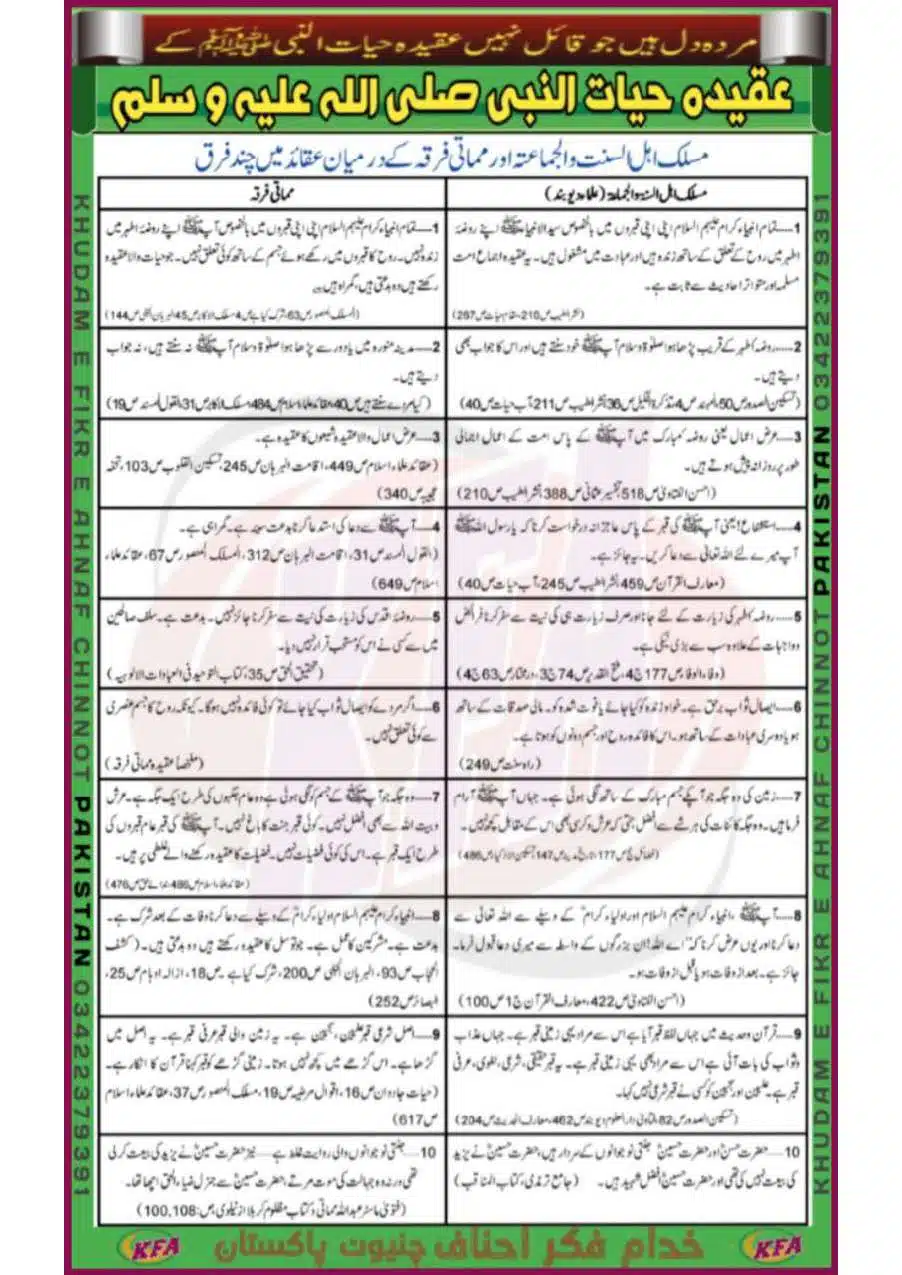 مردہ دل ہیں جو قائل نہیں عقیدہ حیات النبی ﷺ کے
عقیدہ حیات النبی صلی اللہ علیہ و سلم
مسلک اہل السنت والجماعتہ اور مماتی فرقہ کے درمیان عقائد میں چند فرق
مسلک اہل السنۃ والجماعۃ (علماء دیوبند)
مماتی فرقہ
1۔۔۔۔تمام انبیاء کرام علیہم السلام اپنی اپنی قبروں میں بالخصوص سید الانبیاء ﷺ اپنے روضۂ
اطہر میں روح کے تعلق کے ساتھ زندہ ہیں اور عبادت میں مشغول ہیں۔ یہ عقیدہ اجماع امت
مسلمہ اور متواتر احادیث سے ثابت ہے۔
(نشر الطیب ص210، مقام حیات ص267)
1۔۔۔۔تمام انبیاء کرام علیہم السلام اپنی اپنی قبروں میں بالخصوص آپ ﷺ اپنے روضۂ اطہر میں
زندہ نہیں۔ روح کا قبروں میں رکھے ہوئے جسم کے ساتھ کوئی تعلق نہیں۔ جو حیات والا عقیدہ
رکھتے ہیں وہ بدعتی ہیں، گمراہ ہیں۔
(المسلک المنصور ص63، شرک کیا ہے ص4، مسلک الاکابر ص45، البرہان الجلی ص144)
2۔۔۔۔روضۂ اطہر کے قریب پڑھا ہوا صلوٰۃ وسلام آپ ﷺ خود سنتے ہیں اور اس کا جواب بھی
دیتے ہیں۔
(تسکین الصدور ص50، المہند ص4، تذکرۃ الخلیل ص36، نشر الطیب ص211، آب حیات ص40)
2۔۔۔۔مدینہ منورہ میں یا دور سے پڑھا ہوا صلوٰۃ وسلام آپ ﷺ نہ سنتے ہیں، نہ جواب
دیتے ہیں۔
(کیا مردے سنتے ہیں ص40، عقائد علماء اسلام ص484، مسلک الاکابر ص31، القول المسند ص19)
3۔۔۔۔عرض اعمال یعنی روضۂ مبارک میں آپ ﷺ کے پاس امت کے اعمال اجمالی
طور پر روزانہ پیش ہوتے ہیں۔
(احسن الفتاویٰ ص518، تفسیر عثمانی ص388، نشر الطیب ص210)
3۔۔۔۔عرض اعمال والا عقیدہ شیعوں کا عقیدہ ہے۔
(عقائد علماء اسلام ص449، اقامت البرہان ص245، تسکین القلوب ص103، تحفہ
عجیبہ ص340)
4۔۔۔۔استشفاع! یعنی آپ ﷺ کی قبر کے پاس عاجزانہ درخواست کرنا کہ یا رسول اللہ ﷺ
آپ میرے لئے اللہ تعالیٰ سے دعا کریں۔ یہ جائز ہے۔
(معارف القرآن ص459، نشر الطیب ص245، آب حیات ص40)
4۔۔۔۔آپ ﷺ سے دعا کی استدعا کرنا بدعت سیئہ ہے۔ گمراہی ہے۔
(القول المسند ص31، اقامت البرہان ص312، المسلک المنصور ص67، عقائد علماء
اسلام ص649)
5۔۔۔۔روضۂ اطہر کی زیارت کے لئے جانا اور صرف زیارت ہی کی نیت سے سفر کرنا فرائض
وواجبات کے علاوہ سب سے بڑی نیکی ہے۔
(وفاء الوفا ص177 ج4، فتح القدیر ص74 ج3، درمختار ص63 ج4)
5۔۔۔۔روضۂ اقدس کی زیارت کی نیت سے سفر کرنا جائز نہیں۔ بدعت ہے۔ سلف صالحین
میں سے کسی نے اس کو مستحب قرار نہیں دیا۔
(تحقیق الحق ص35، کتاب التوحید فی العبادات الالوہیہ)
6۔۔۔۔ایصال ثواب برحق ہے۔ خواہ زندہ کو کیا جائے یا فوت شدہ کو۔ مالی صدقات کے ساتھ
ہو یا دوسری عبادات کے ساتھ ہو۔ اس کا فائدہ روح اور جسم دونوں کو ہوتا ہے۔
(راہ سنت ص249)
6۔۔۔۔اگر مردے کو ایصال ثواب کیا جائے تو کوئی فائدہ نہیں ہوگا۔ کیونکہ روح کا جسم عنصری
سے کوئی تعلق نہیں۔
(ملخصاً عقیدہ مماتی فرقہ)
7۔۔۔۔زمین کی وہ جگہ جو آپکے جسم مبارک کے ساتھ لگی ہوئی ہے۔ جہاں آپ ﷺ آرام
فرما ہیں۔ وہ جگہ کائنات کی ہر شے سے افضل حتیٰ کہ عرش و کرسی بھی اس کے مقابل کچھ نہیں۔
7۔۔۔۔وہ جگہ جو آپ ﷺ کے جسم کو لگی ہوئی ہے وہ عام جگہوں کی طرح ایک جگہ ہے۔ عرش
و بیت اللہ سے بھی افضل نہیں۔ کوئی قبر جنت کا باغ نہیں۔ آپ ﷺ کی قبر عام قبروں کی
طرح ایک قبر ہے۔ اس کی کوئی فضیلت نہیں۔ فضیلت کا عقیدہ رکھنے والے غلطی پر ہیں۔
8۔۔۔۔آپ ﷺ، انبیاء کرام علیہم السلام اور اولیاء کرامؒ کے وسیلے سے اللہ تعالیٰ سے
دعا کرنا اور یوں عرض کرنا کہ "اے اللہ! ان بزرگوں کے واسطہ سے میری دعا قبول فرما۔
جائز ہے۔ بعد از وفات ہو یا قبل از وفات ہو۔
(احسن الفتاویٰ ص422، معارف القرآن ج1 ص100)
8۔۔۔۔انبیاء کرام علیہم السلام اولیاء کرامؒ کے وسیلے سے دعا کرنا وفات کے بعد شرک ہے۔
بدعت ہے۔ مشرکین کا عمل ہے۔ جو توسل کا عقیدہ رکھتے ہیں وہ بدعتی ہیں۔ (کشف
الحجاب ص93، البرہان الجلی ص200، شرک کیا ہے۔ ص18، ازالہ اوہام ص25،
البصائر ص252)
9۔۔۔۔قرآن و حدیث میں جہاں لفظ قبر آیا ہے اس سے مراد یہی زمینی قبر ہے۔ جہاں عذاب
و ثواب کی بات آئی ہے اس سے مراد بھی یہی زمینی قبر ہے۔ یہ قبر حقیقی، شرعی، لغوی، عرفی
قبر ہے۔ علیین اور سجین کو کسی نے قبر شرعی نہیں کہا۔
(تسکین الصدور ص82، فتاویٰ دارالعلوم دیوبند ص462، معارف الحدیث ص204)
9۔۔۔۔اصل شرعی قبر علیین، سجین ہے۔ یہ زمین والی قبر عرفی قبر ہے۔ یہ اصل میں
گڑھا ہے۔ اس گڑھے میں کچھ نہیں ہوتا۔ زمینی گڑھے کو قبر کہنا قرآن کا انکار ہے۔
(حیات جاوداں ص16، اقوال مرضیہ ص19، مسلک المنصور ص37، عقائد علماء اسلام
ص617)
10۔۔۔۔حضرت حسنؓ اور حضرت حسینؓ جنتی نوجوانوں کے سردار ہیں، حضرت حسینؓ نے یزید
کی بیعت نہیں کی تھی اور حضرت حسینؓ افضل شہید ہیں۔ (جامع ترمذی، کتاب المناقب)
10۔۔۔۔جنتی نوجوانوں والی روایت غلط ہے۔ نیز حضرت حسینؓ نے یزید کی بیعت کر لی
تھی ورنہ وہ جہالت کی موت مرتے حضرت حسینؓ سے جنرل ضیاء الحق اچھا تھا۔
(فتویٰ ماسٹر عبداللہ مماتی و کتاب مظلوم کربلا از نیلوی ص:100,108)
KHUDAM E FIKRE AHNAF CHINNOT PAKISTAN 03422379391
KHUDAM E FIKRE AHNAF CHINNOT PAKISTAN 03422379391
KFA
خدام فکر احناف چنیوٹ پاکستان
KFA